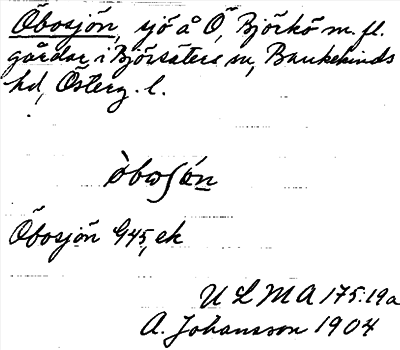 Öbosjön, sjö å Ö, Björkö m. fl.
gårdar i Björsäters sn, Bankekinds
hd, Österg. l.
öbωʃön
Öbosjön G45, ek
ULMA 175:19a
A. Johansson 1904